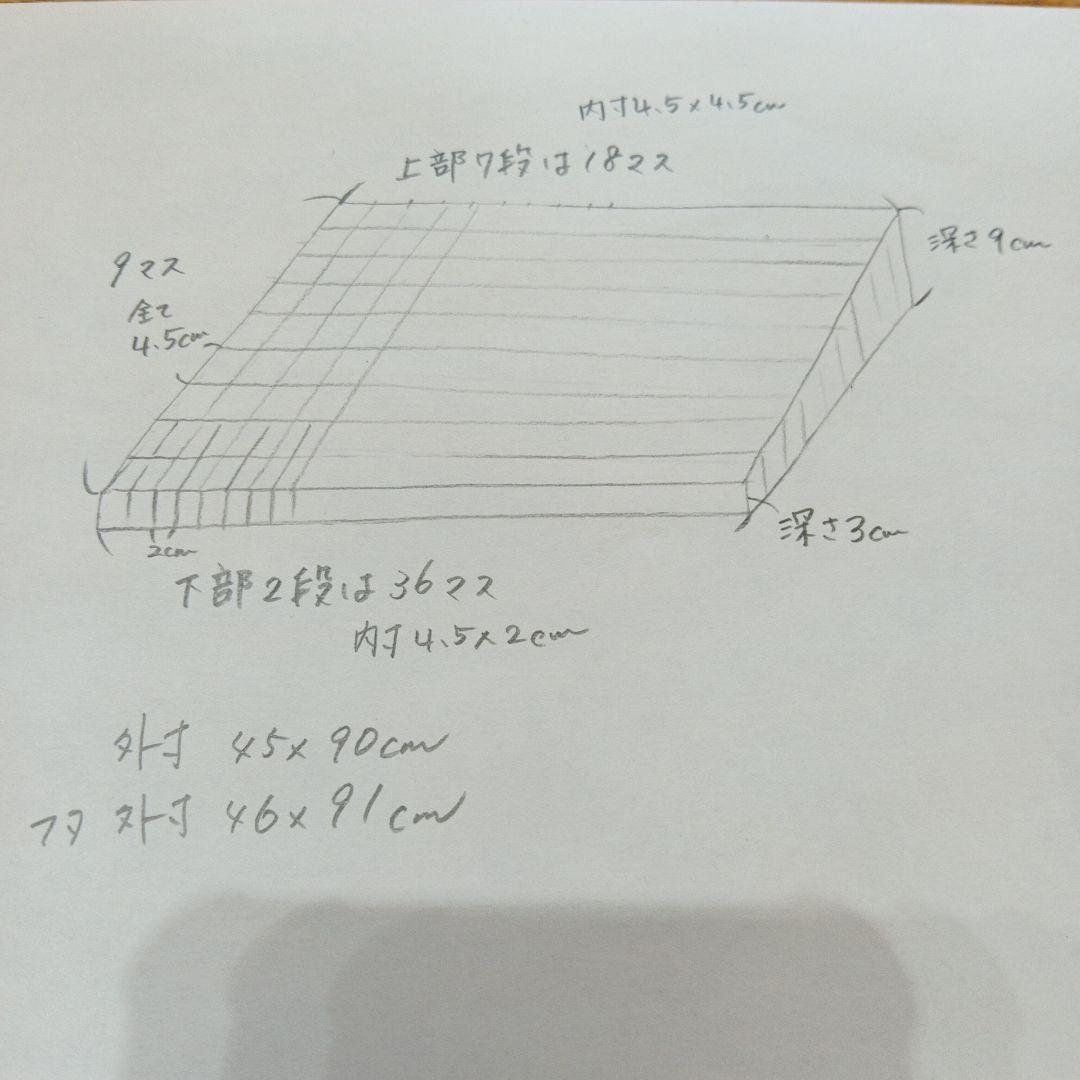 内寸4.5×4.5cm
上部7段は18マス
深さ9cm
9マス
全て
4.5cm
深さ3cm
2cm
下部2段は36マス
内寸4.5×2cm
外寸 45×90cm
フタ 外寸 46×91cm